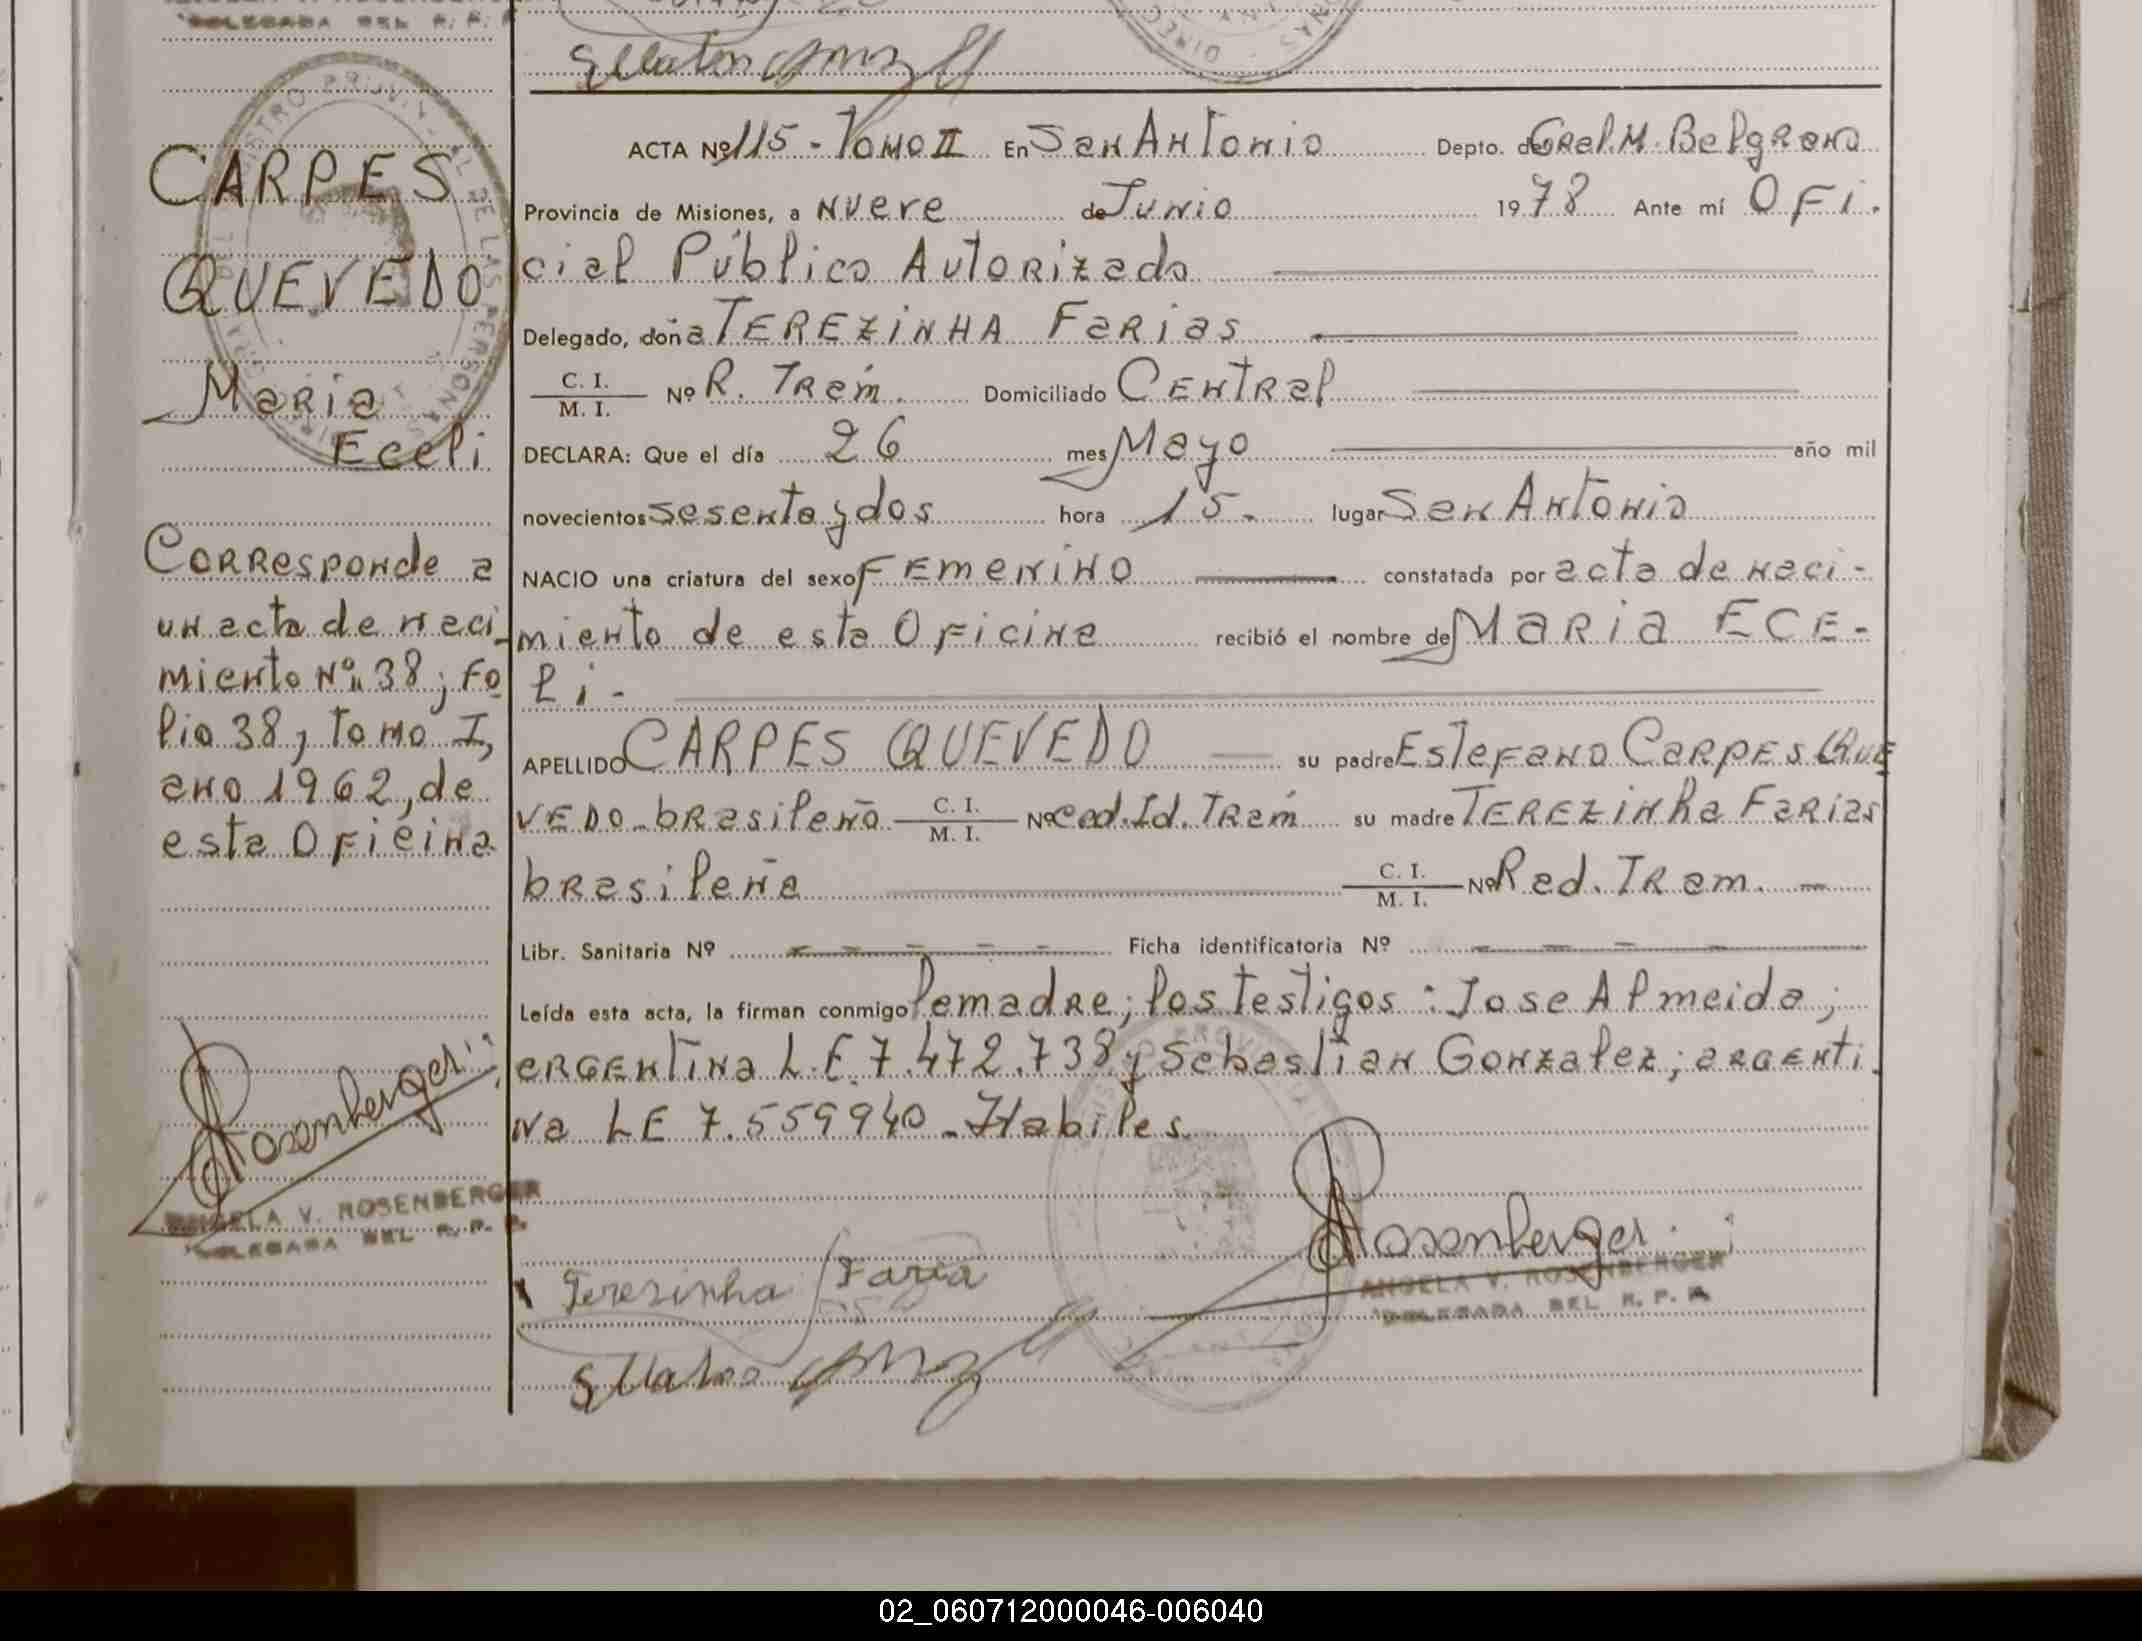 DELEGADA DEL R. P.
ACTA Nº 115 - Tomo II En San Antonio Depto. de Gral. M. Belgrano
Provincia de Misiones, a nueve de Junio 1978 Ante mí Ofi-
cial Público Autorizado
Delegado, doña TEREZINHA Farias
C. I. / M. I. Nº R. Trám. Domiciliado Central
DECLARA: Que el día 26 mes Mayo año mil
novecientos sesenta y dos hora 15. lugar San Antonio
NACIO una criatura del sexo Femenino constatada por acta de naci-
miento de esta Oficina recibió el nombre de MARIA ECE-
li -
APELLIDO CARPES QUEVEDO su padre Estefano Carpes Que
vedo - brasileño C. I. / M. I. Nº Ced. Id. Trám su madre Terezinha Farias
brasileña C. I. / M. I. Nº Rad. Tram. -
Libr. Sanitaria Nº - - - - - Ficha identificatoria Nº - - - -
Leída esta acta, la firman conmigo la madre; los testigos: Jose Almeida;
argentina L.E. 7.472.738 y Sebastian Gonzalez; argenti-
na LE 7.559940 - Habiles.
CARPES
QUEVEDO
Maria
Eceli
Corresponde a
un acta de naci-
miento Nº 38; Fo
lio 38, tomo I,
año 1962, de
esta Oficina.
Rosenberger
ANGELA V. ROSENBERGER
DELEGADA DEL R. P. P.
Rosenberger
ANGELA V. ROSENBERGER
DELEGADA DEL R. P. P.
Terezinha Faria
02_060712000046-006040